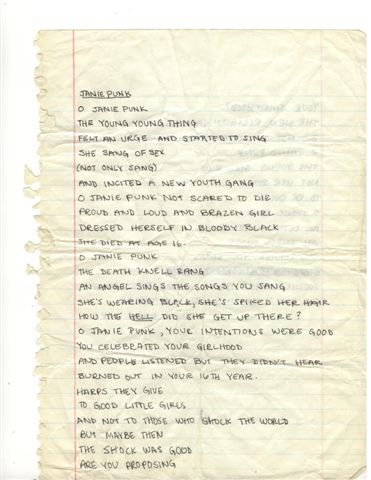 JANIE PUNK
O JANIE PUNK
THE YOUNG YOUNG THING
FELT AN URGE AND STARTED TO SING
SHE SANG OF SEX
(NOT ONLY SANG)
AND INCITED A NEW YOUTH GANG
O JANIE PUNK NOT SCARED TO DIE
PROUD AND LOUD AND BRAZEN GIRL
DRESSED HERSELF IN BLOODY BLACK
SHE DIED AT AGE 16.
O JANIE PUNK
THE DEATH KNELL RANG
AN ANGEL SINGS THE SONGS YOU SANG
SHE'S WEARING BLACK, SHE'S SPIKED HER HAIR
HOW THE HELL DID SHE GET UP THERE?
O JANIE PUNK, YOUR INTENTIONS WERE GOOD
YOU CELEBRATED YOUR GIRLHOOD
AND PEOPLE LISTENED BUT THEY DIDN'T HEAR
BURNED OUT IN YOUR 16TH YEAR.
HARPS THEY GIVE
TO GOOD LITTLE GIRLS
AND NOT TO THOSE WHO SHOCK THE WORLD
BUT MAYBE THEN
THE SHOCK WAS GOOD
ARE YOU PROPOSING